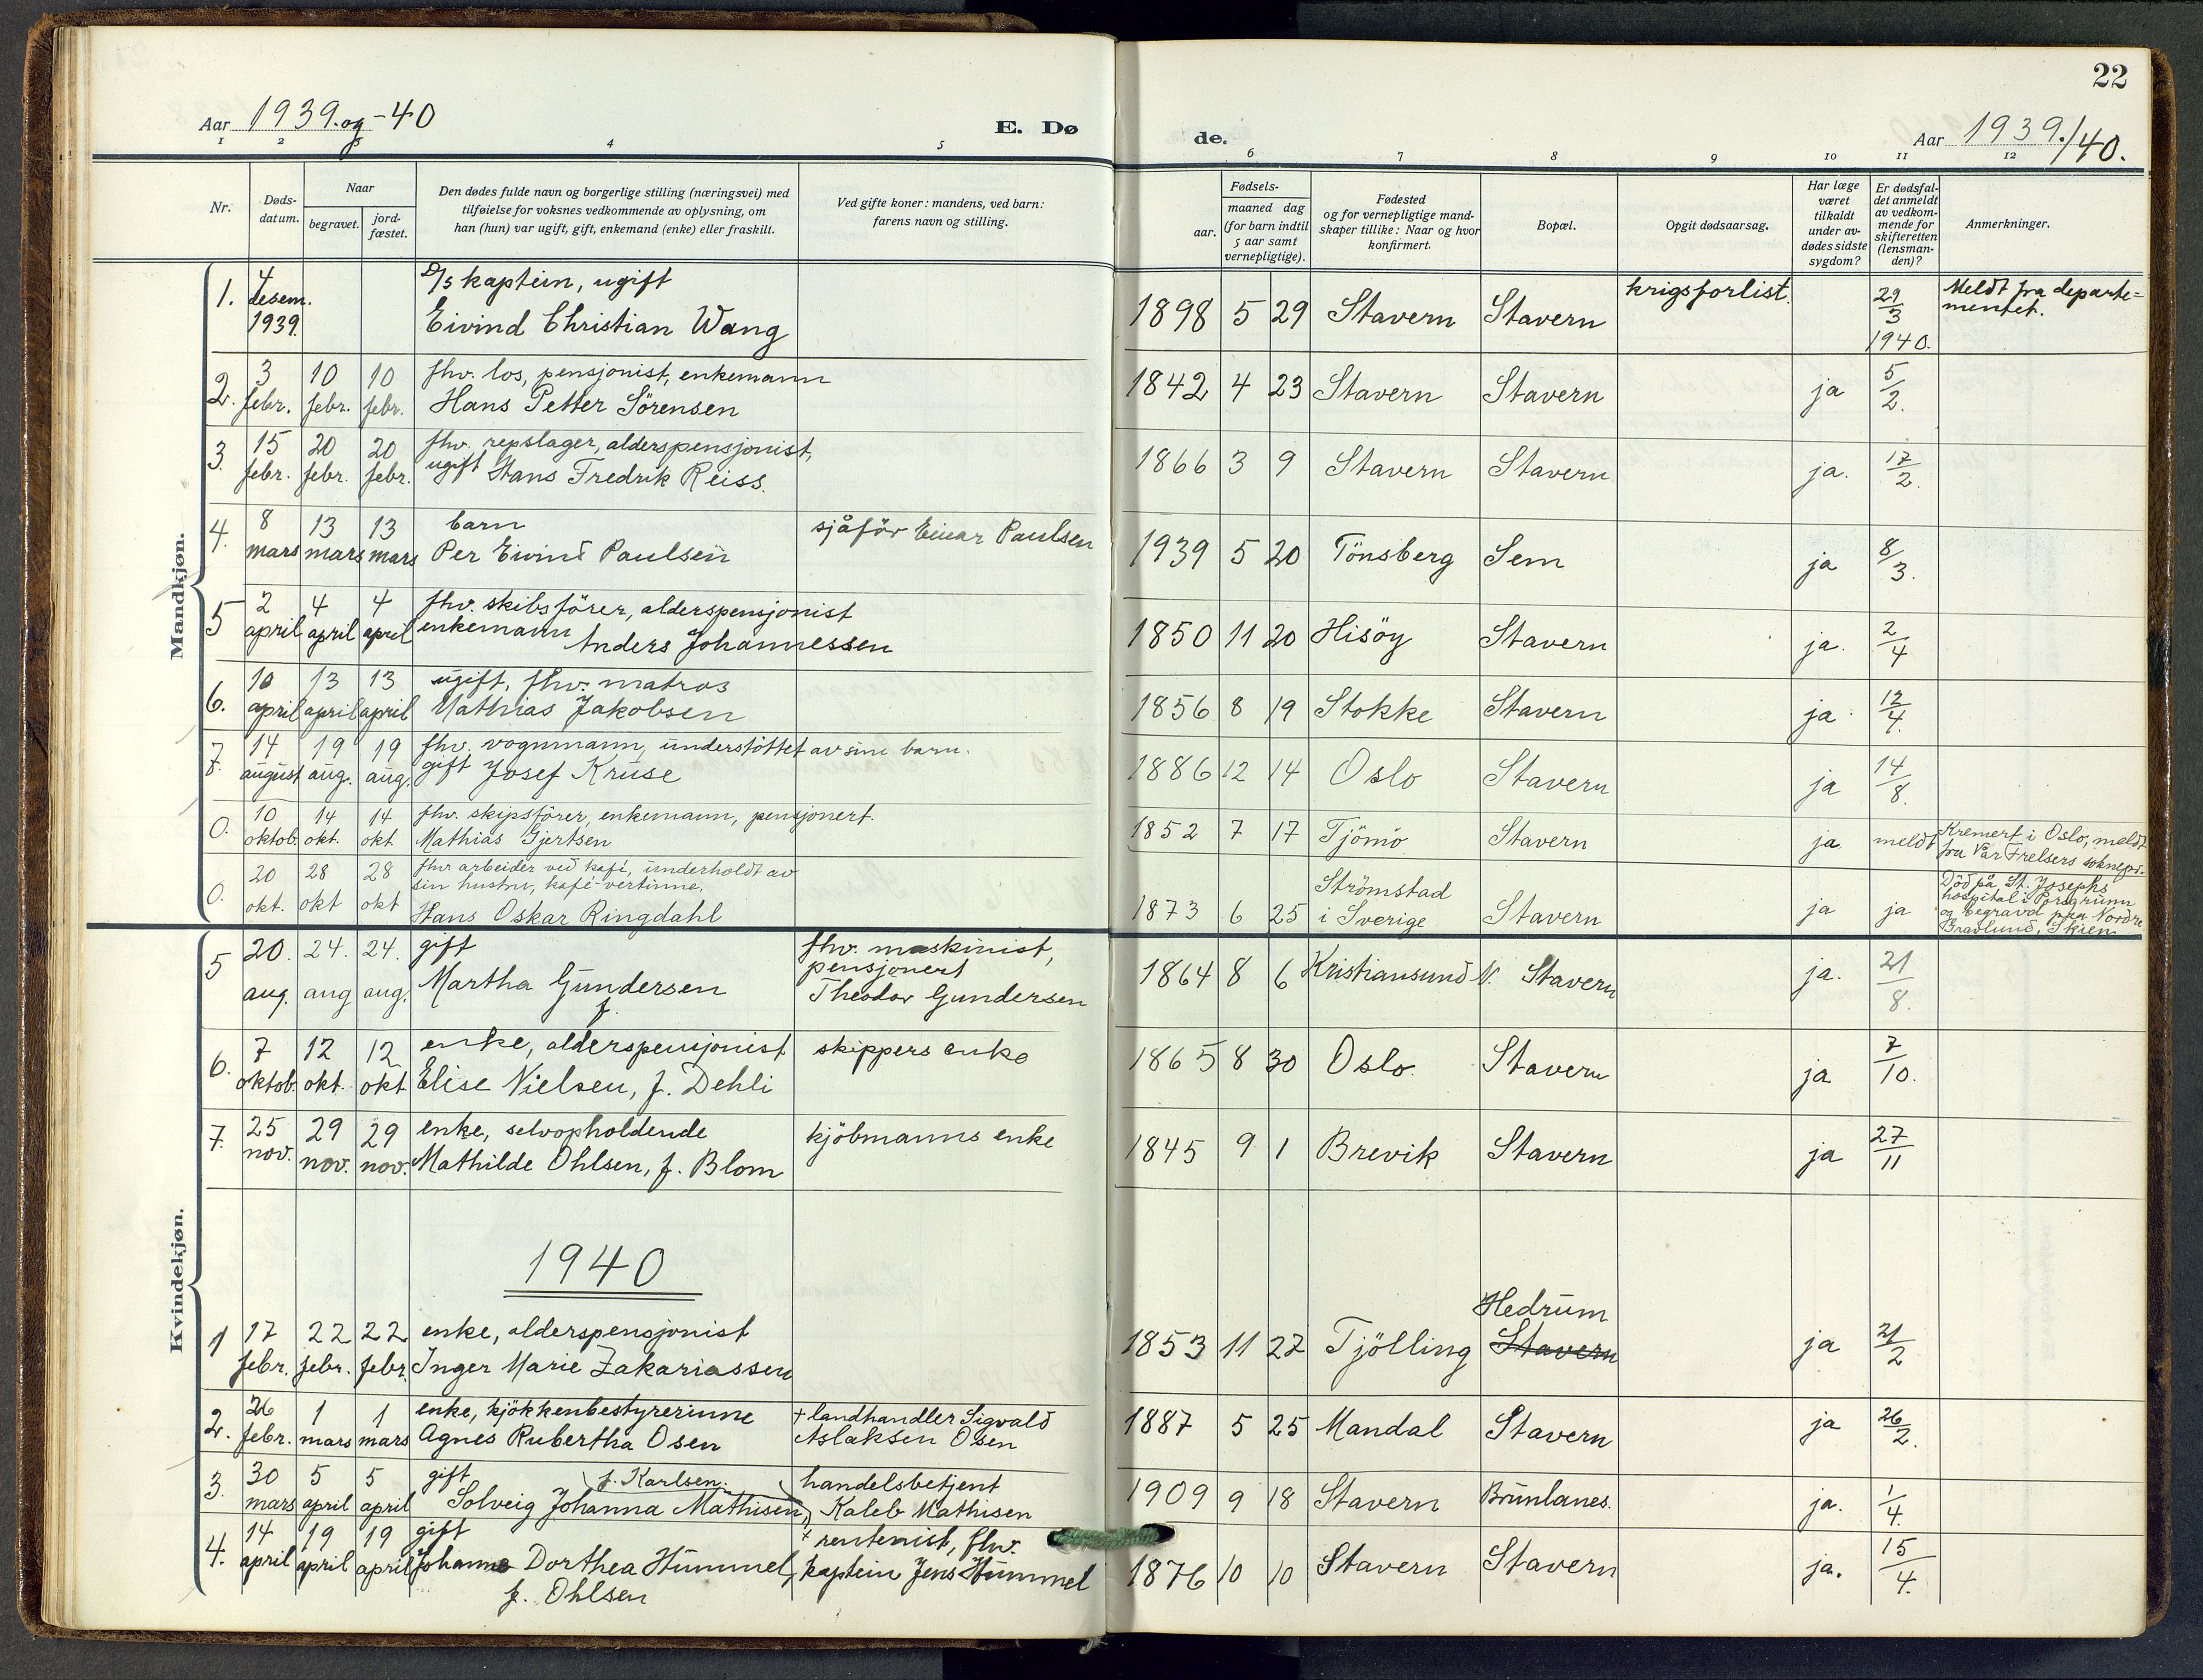 22
Aar 1939. og -40
E. Dø
de.
Aar 1939./40.
1 2 3 4 5 6 7 8 9 10 11 12
Nr.
Døds-
datum.
Naar
begravet.
jord-
fæstet.
Den dødes fulde navn og borgerlige stilling (næringsvei) med
tilføielse for voksnes vedkommende av oplysning, om
han (hun) var ugift, gift, enkemand (enke) eller fraskilt.
Ved gifte koner: mandens, ved barn:
farens navn og stilling.
Fødsels-
aar.
maaned dag
(for barn indtil
5 aar samt
vernepligtige).
Fødested
og for vernepligtige mand-
skaper tillike: Naar og hvor
konfirmert.
Bopæl.
Opgit dødsaarsag.
Har læge
været
tilkaldt
under av-
dødes sidste
sygdom?
Er dødsfal-
det anmeldt
av vedkom-
mende for
skifteretten
(lensman-
den)?
Anmerkninger.
Mandkjøn.
1. 4 desem. 1939. D/s kaptein, ugift
Eivind Christian Wang
1898 5 29 Stavern Stavern krigsforlist. 29/3 1940. Meldt fra departe=
mentet.
2. 3 febr. 10 febr. 10 febr. fhv. los, pensjonist, enkemann
Hans Petter Sörensen
1842 4 23 Stavern Stavern ja 5/2.
3. 15 febr. 20 febr. 20 febr. fhv. repslager, alderspensjonist,
ugift Hans Fredrik Reiss.
1866 3 9 Stavern Stavern ja. 17/2.
4. 8 mars 13 mars 13 mars barn
Per Eivind Paulsen
sjåför Einar Paulsen
1939 5 20 Tönsberg Sem ja 8/3.
5 2 april 4 april 4 april fhv. skibsförer, alderspensjonist
enkemann Anders Johannessen
1850 11 20 Hisöy Stavern ja. 2/4
6. 10 april 13 april 13 april ugift, fhv. matros
Mathias Jakobsen
1856 8 19 Stokke Stavern ja 12/4.
7. 14 august 19 aug. 19 aug. fhv. vognmann, understöttet av sine barn.
gift Josef Kruse
1886 12 14 Oslo Stavern ja 14/8.
0. 10 oktob. 14 okt. 14 okt fhv. skipsförer, enkemann, pensjonert.
Mathias Gjertsen
1852 7 17 Tjömö Stavern ja meldt Kremert i Oslo, meldt
fra Vår Frelsers soknepr.
0. 20 okt. 28 okt 28 okt fhv arbeider ved kafé, underholdt av
sin hustru, kafé-vertinne,
Hans Oskar Ringdahl
1873 6 25 Strömstad
i Sverige Stavern ja ja Död på St. Josephs
hospital i Porsgrunn
og begravd paa Nordre
Skien
Kvindekjøn.
5 20. aug. 24. aug 24. aug. gift
Martha Gundersen
f.
fhv. maskinist,
pensjonert
Theodor Gundersen
1864 8 6 Kristiansund N. Stavern ja. 21/8.
6. 7 oktob. 12 okt. 12 okt enke, alderspensjonist
Elise Nielsen, f. Dehli
skippers enke
1865 8 30 Oslo. Stavern ja 7/10.
7. 25 nov. 29 nov. 29 nov. enke, selvopholdende
Mathilde Ohlsen, f. Blom
kjöbmanns enke
1845 9 1 Brevik Stavern ja 27/11
1940
1 17 febr. 22 febr. 22 febr. enke, alderspensjonist
Inger Marie Zakariassen
1853 11 27 Tjölling Hedrum
Stavern ja 21/2
2. 26 febr. 1 mars 1 mars enke, kjökkenbestyrerinne
Agnes Rubertha Osen
+ landhandler Sigvald
Aslaksen Osen
1887 5 25 Mandal Stavern ja 26/2.
3. 30 mars 5 april 5 april gift f. Karlsen.
Solveig Johanna Mathisen,
handelsbetjent
Kaleb Mathisen
1909 9 18 Stavern Brunlanes. ja. 1/4.
4. 14 april 19 april 19 april gift
Johanne Dorthea Hummel,
f. Ohlsen
+ rentenist, fhv.
kaptein Jens Hummel
1876 10 10 Stavern Stavern ja. 15/4.